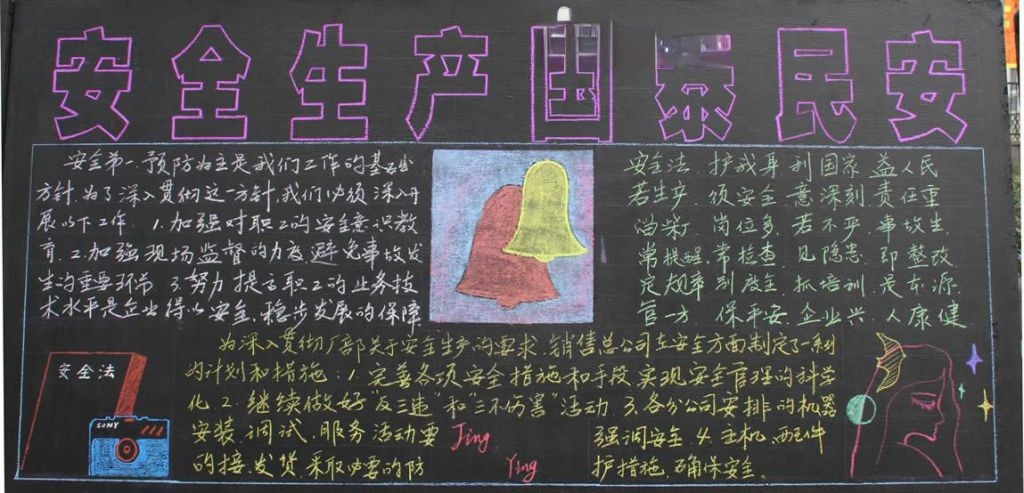 安全生产国泰民安
安全第一预防为主是我们工作的基础
方针,为了深入贯彻这一方针,我们必须深入开
展以下工作:1.加强对职工的安全意识教
育.2.加强现场监督的力度避免事故发
生的重要环节.3.努力提高职工的业务技
术水平是企业得以安全,稳步发展的保障
安全法.护我身.利国家.益人民
若生产.须安全.意深刻.责任重
岗位多.若不平.事故生.
常提醒.常检查.见隐患.即整改.
定规章.别废主.抓培训.是本源.
官一方.保平安.企业兴.人康健
为深入贯彻厂部关于安全生产的要求.销售总公司在安全方面制定了一系列
的计划和措施:1.完善各项安全措施和手段.实现安全管理的科学
化.2.继续做好"反三违"和"三不伤害"活动.3.各分公司安排的机器
安装.调试.服务活动要 强调安全.4.主机.配件
的接.发货.采取必要的防 护措施.确保安全.
Jing
Ying
安全法
SONY